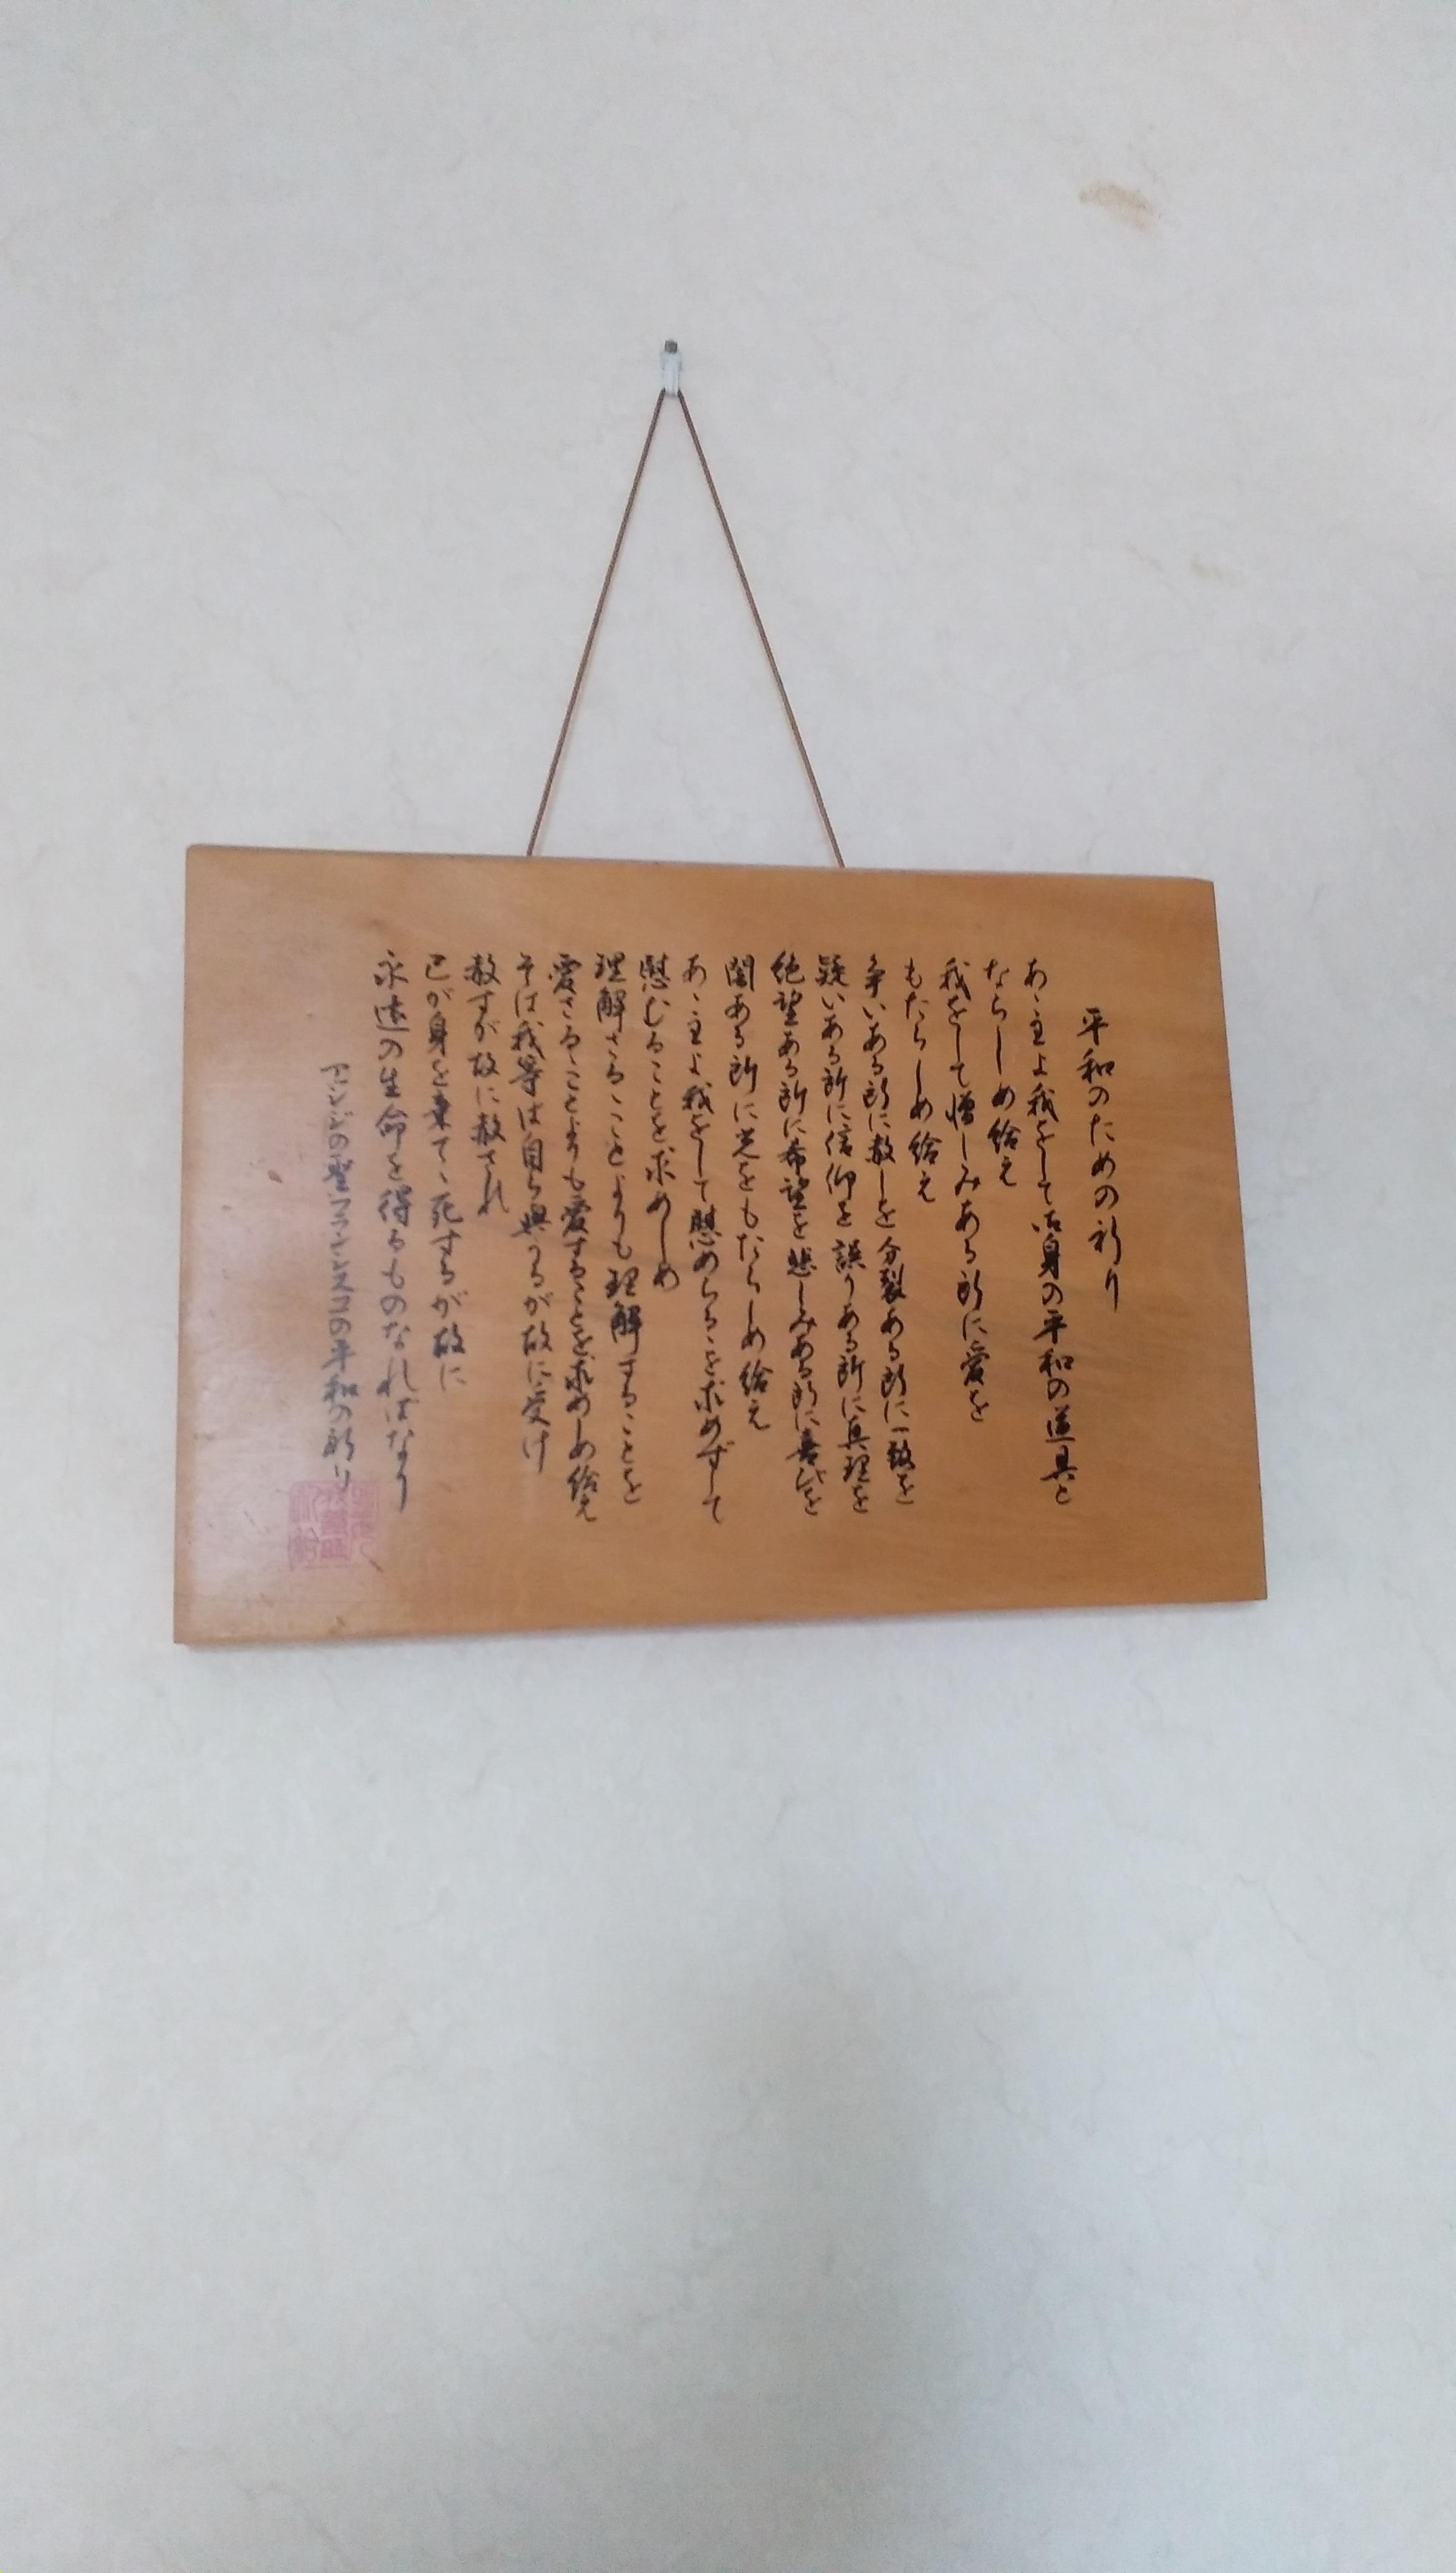 平和のための祈り
あゝ主よ我をして御身の平和の道具と
ならしめ給え
我をして憎しみある所に愛を
もたらしめ給え
争いある所に赦しを分裂ある所に一致を
疑いある所に信仰を誤りある所に真理を
絶望ある所に希望を悲しみある所に喜びを
闇ある所に光をもたらしめ給え
あゝ主よ我をして慰めらるゝを求めずして
慰むることを求めしめ
理解さるゝことよりも理解することを
愛さるゝことよりも愛することを求めしめ給え
そは我等は自ら與うるが故に受け
赦すが故に赦され
己が身を棄てゝ死するが故に
永遠の生命を得るものなればなり
アシジの聖フランシスコの平和の祈り